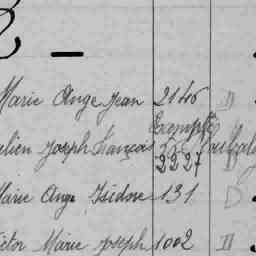 Marie Ange Jean 2146 D
Exempté
Julien Joseph François
2227 D
Marie Ange Isidore 131 D
Victor Marie Joseph 1002 D